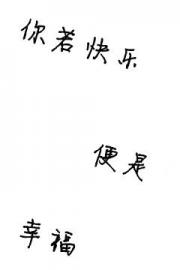 你若快乐
便是
幸福